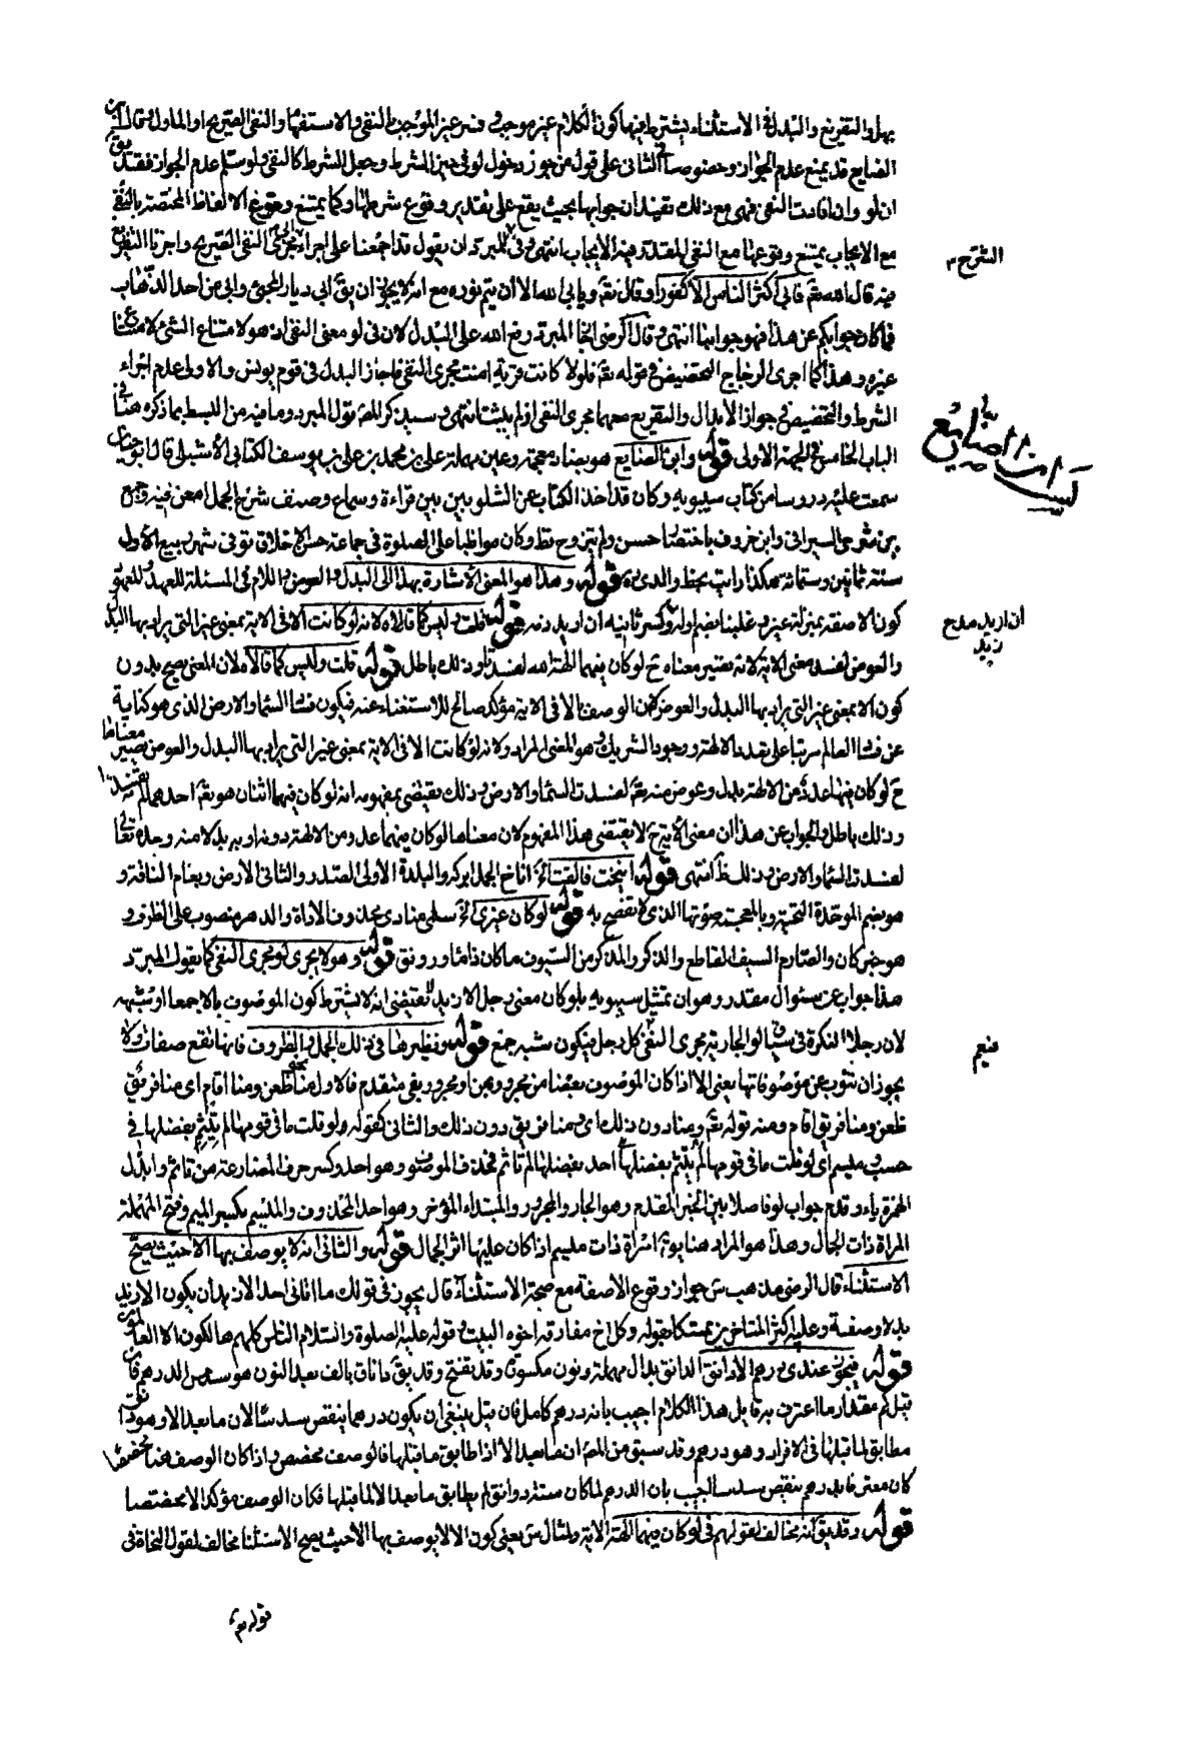 بهل والتفريغ والبدل في الاستثناء يشترط فيها كون الكلام غير موجب وفسر غير الموجب بالنفي والاستفهام والنفي الصريح او الماول وقال ابن
الضايع قد يمنع عدم الجواز وخصوصا في الثاني على قول من جوز دخول لو في حيز الشرط وجعل الشرط كالنفي ولو سلم عدم الجواز فقد يق
ان لو وان افادت النفي فهي مع ذلك تقيد ان جوابها بحيث يقع على تقدير وقوع شرطها وكما يمتنع وقوع الالفاظ المختصة بالنفي
مع الايجاب يمتنع وقوعها مع النفي المقدر فيه الايجاب انتهى وللمبرد ان يقول قد اجمعنا على اجراء ابى مجرى النفي الصريح واجزنا التفريغ
فيه قال الله تعم فابى اكثر الناس الا كفورا وقال تعم ويابى الله الا ان يتم نوره مع انه لا يجوز ان يق ابى ديار المجئ وابى من احد الذهاب
فما كان جوابكم عن هذا فهو جوابنا انتهى وقال الرضى اجاز المبرد رفع الله على البدل لان في لو معنى النفي اذ هو لامتناع الشئ لامتناع
غيره وهذا كما اجرى الزجاج التحضيض في قوله تعم فلولا كانت قرية امنت مجرى النفي فاجاز البدل في قوم يونس والاولى عدم اجراء
الشرط والتحضيض في جواز الابدال والتفريغ معهما مجرى النفي اذ لم يثبت انتهى وسيذكر المص قول المبرد وما فيه من البسط بما ذكره هنا في
الباب الخامس في الجهة الاولى قوله وابن الضايع هو بضاد معجمة وعين مهملة علي بن محمد بن علي بن يوسف الكتامي الاشبيلي قال ابو حيان
سمعت عليه دروسا من كتاب سيبويه وكان قد اخذ الكتاب عن الشلوبين بين قراءة وسماع وصنف شرح الجمل امعن فيه وجمع
بين شرحى السيرافي وابن خروف باختصار حسن ولم يتزوج قط وكان مواظبا على الصلوة في جماعة حسن الاخلاق توفي شهر ربيع الاول
سنة ثمانين وستمائة هكذا رايت بخط والدى ره قوله وهذا هو المعنى الاشارة بهذا الى البدل والعوض واللام في المسئلة للعهد والمعهود
كون الا صفة بمنزلة غير وغلبنا بضم اوله وكسر ثانيه ان اريد دنه قوله قلت وليس كما قالاه لانه لو كانت الا في الاية بمعنى غير التي يراد بها البدل
والعوض لفسد معنى الاية لانه يصير معناه ح لو كان فيهما الهة الله لفسدتا وذلك باطل قوله قلت وليس كما قالاه لان المعنى يصح بدون
كون الا بمعنى غير التي يراد بها البدل والعوض لان الوصف بالا في الاية مؤكد صالح للاستغناء عنه فيكون فساد السماء والارض الذى هو كناية
عن فساد العالم مرتبا على تعدد الالهة ووجود الشريك وهو المعنى المراد ولانه لو كانت الا في الاية بمعنى غير التي يراد بها البدل والعوض يصير معناها
ح لو كان فيها عدد من الالهة بدل وعوض منه تعم لفسدت السماء والارض وذلك يقتضى بمفهومه انه لو كان فيهما اثنان هو تعم احدهما لم تفسدا
وذلك باطل والجواب عن هذا ان معنى الاية ح لا يقتضى هذا المفهوم لان معناها لو كان فيهما عدد من الالهة دونه او بدلا منه وحده تعالى
لفسدت السماء والارض وذلك انتهى قوله انيخت فالقت الخ اناخ الجمل ابركه والبلدة الاولى الصدر والثاني الارض وبغام الناقة و
هو بضم الموحدة التحتية وبالمعجمة صوتها الذى لا تفصح به قوله لو كان غيرى الخ سلمى منادى محذوف الاداة والدهر منصوب على الظرف و
هو خبر كان والصارم السيف القاطع والذكر والمذكر من السيوف ما كان ذا ماء ورونق قوله وهو لا يجرى لو مجرى النفي كما يقول المبرد
هذا جواب عن سئوال مقدر وهو ان تمثيل سيبويه بلو كان معنى رجل الا زيد يقتضى انه لا يشترط كون الموصوف بالا جمعا او شبهه
لان رجلا النكرة في سياق لو الجارية مجرى النفي كل رجل فيكون شبه جمع قوله ونظيرها في ذلك الجمل والظروف فانها تقع صفات ولا
يجوز ان تنوب عن موصوفاتها يعنى الا اذا كان الموصوف بعضا من مجرور بمن او مجرور بفى متقدم فالاول نحو منا ظعن ومنا اقام اى منا فريق
ظعن ومنا فريق اقام ومنه قوله تعم ومنا دون ذلك اى ومنا فريق دون ذلك والثاني كقوله ولو قلت ما في قومها لم تيثم بفضلها في
حسب وميسم اى لو قلت ما في قومها لم تيثم يفضلها احد بفضلها لم تاثم فحذف الموصوف وهو احد وكسر حرف المضارعة من تاثم وابدل
الهمزة ياء وقدم جواب لو فاصلا بين الخبر المقدم وهو الجار والمجرور والمبتداء المؤخر وهو احد المحذوف والميسم بكسر الميم وفتح المهملة
المراة ذات الجمال وهذا هو المراد هنا يق امراة ذات ميسم اذا كان عليها اثر الجمال قوله والثاني انه لا يوصف بها الا حيث يصح
الاستثناء قال الرضى مذهب س جواز وقوع الا صفة مع صحة الاستثناء قال يجوز في قولك ما اتاني احد الا زيد ان يكون الا زيد
بدلا وصفة وعليه اكثر المتاخرين تمسكا بقوله وكل اخ مفارقه اخوه البيت وقوله عليه الصلوة والسلام الناس كلهم هالكون الا العالمون
قوله فيجوز عندى درهم الا دانق الدانق بدال مهملة ونون مكسورة وقد تفتح وقد يق داناق بالف بعد النون هو سدس الدرهم فان
قيل كم مقدار ما اعترف به قايل هذا الكلام اجيب بانه درهم كامل فان قيل ينبغى ان يكون درهما ينقص سدسا لان ما بعد الا وهو دانق
مطابق لما قبلها في الافراد وهو درهم وقد سبق من المص ان ما بعد الا اذا طابق ما قبلها فالوصف مخصص واذا كان الوصف هنا مخصصا
كان معترفا بدرهم ينقص سدسا اجيب بان الدرهم لما كان ستة دوانق لم يطابق ما بعد الا لما قبلها فكان الوصف مؤكدا لا مخصصا
قوله وقد يق انه مخالف لقولهم في لو كان فيهما الهة الاية ولمثال س يعنى كون الا لا يوصف بها الا حيث يصح الاستثنا مخالف لقول النحاة في
الشرح
ان اريد مدح زيد
فيعم
قولهم